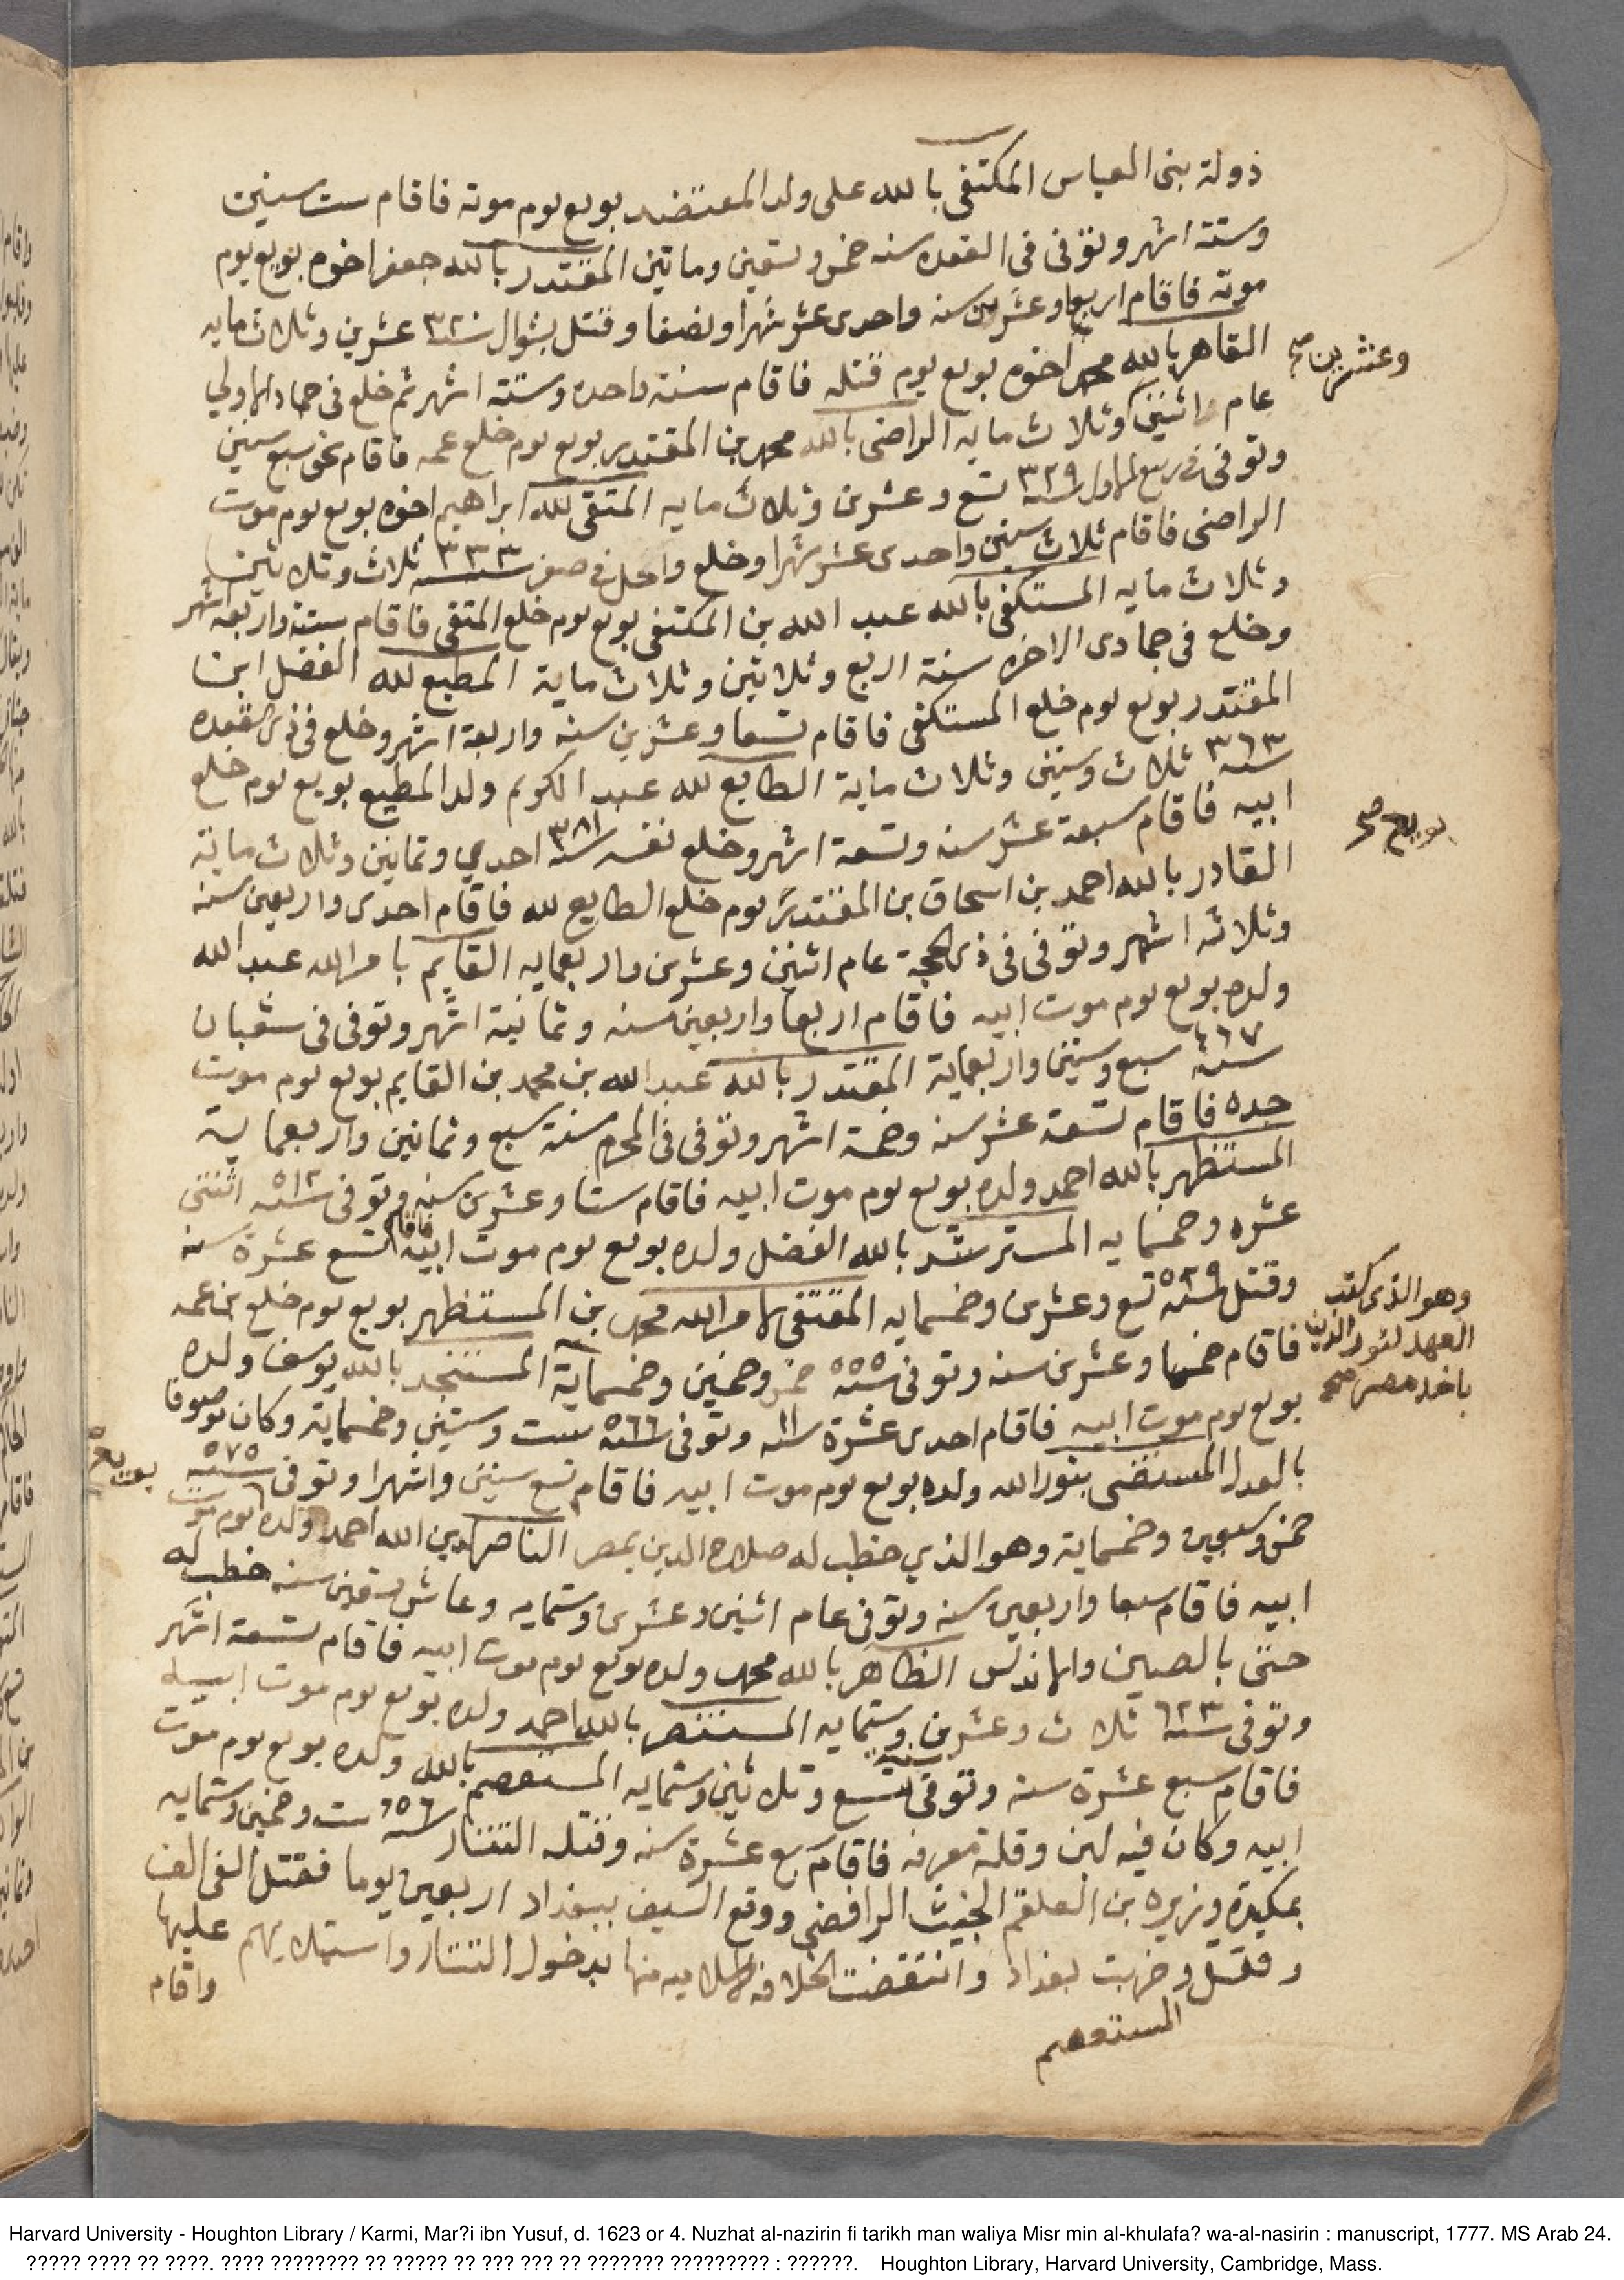 ذولة بنى العباس المكتفى بالله على ولد المعتضد بويع يوم موته فاقام ست سنين
وستة اشهر وتوفى فى القعده سنه خمس وتسعين وماتين المقتدر بالله جعفر اخوه بويع يوم
موته فاقام اربعا وعشرين سنه واحدى عشر شهرا ونصفا وقتل بشوال سنة ٣٢٠ عشرين وثلاث مايه
وعشرين صح
القاهر بالله محمد اخوه بويع يوم قتله فاقام سنة واحده وستة اشهر ثم خلع فى جماد الاولي
عام اثنين وثلاث مايه الراضى بالله محمد بن المقتدر بويع يوم خلع عمه فاقام نحو سبع سنين
وتوفى فى ربيع الاول سنة ٣٢٩ تسع وعشرين وثلاث مايه المتقى لله ابراهيم اخوه بويع يوم موت
الراضى فاقام ثلاث سنين واحدى عشر شهرا وخلع واكحل فى صفر سنة ٣٣٣ ثلاث وثلاثين
وثلاث مايه المستكفى بالله عبد الله بن المكتفى بويع يوم خلع المتقى فاقام سنة واربعة اشهر
وخلع فى جمادى الاخره سنة اربع وثلاثين وثلاث ماية المطيع لله الفضل ابن
المقتدر بويع يوم خلع المستكفى فاقام تسعا وعشرين سنه واربعة اشهر وخلع فى ذى القعده
سنة ٣٦٣ ثلاث وستين وثلاث ماية الطايع لله عبد الكريم ولد المطيع بويع يوم خلع
ابيه فاقام سبعة عشر سنه وتسعة اشهر وخلع نفسه سنة ٣٨١ احدي وثمانين وثلاث ماية
بويع صح
القادر بالله احمد بن اسحاق بن المقتدر يوم خلع الطايع لله فاقام احدى واربعين سنه
وثلاثه اشهر وتوفى فى ذى الحجة عام اثنين وعشرين واربعمايه القايم بامر الله عبد الله
ولده بويع يوم موت ابيه فاقام اربعا واربعين سنه وثمانية اشهر وتوفى فى شعبان
سنة ٤٦٧ سبع وستين واربعماية المقتدر بالله عبد الله بن محمد بن القايم بويع يوم موت
جده فاقام تسعة عشر سنه وخمسة اشهر وتوفى فى المحرم سنة سبع وثمانين واربعماية
المستظهر بالله احمد ولده بويع يوم موت ابيه فاقام ستا وعشرين سنه وتوفى سنة ٥١٢ اثنتى
عشره وخمسمايه المسترشد بالله الفضل ولده بويع يوم موت ابيه فاقام تسع عشرة سنه
وقتل سنة ٥٢٩ تسع وعشرين وخمسمايه المقتفى لامر الله محمد بن المستظهر بويع يوم خلع بن عمه
وهو الذى كتب
العهد لنور الدين
باخذ مصر صح
فاقام خمسا وعشرين سنه وتوفى سنة ٥٥٥ خمس وخمسين وخمسماية المستنجد بالله يوسف ولده
بويع يوم موت ابيه فاقام احدى عشرة سنة وتوفى سنة ٥٦٦ ست وستين وخمسماية وكان موصوفا
بالعدل المستضى بنور الله ولده بويع يوم موت ابيه فاقام تسع سنين واشهرا وتوفى سنة ٥٧٥
بويع صح
خمس وسبعين وخمسماية وهو الذي خطب له صلاح الدين بمصر الناصر لدين الله احمد ولده يوم موت
ابيه فاقام سبعا واربعين سنه وتوفى عام اثنين وعشرين وستمايه وعاش سبعين سنه خطب له
حتى بالصين والاندلس الظاهر بالله محمد ولده بويع يوم موت ابيه فاقام تسعة اشهر
وتوفى سنة ٦٢٣ ثلاث وعشرين وستمايه المستنصر بالله احمد ولده بويع يوم موت ابيه
فاقام سبع عشرة سنه وتوفى سنة تسع وثلاثين وستمايه المستعصم بالله ولده بويع يوم موت
ابيه وكان فيه لين وقلة معرفه فاقام سبع عشرة سنه وقتله التتار سنة ٦٥٦ ست وخمسين وستمايه
بمكيدة وزيره بن العلقم الخبيث الرافضى ووقع السيف ببغداد اربعين يوما فقتل الفى الف
وقتل وخربت بغداد وانقضت الخلافه الاسلاميه منها بدخول التتار واستيلايهم عليها
واقام
المستعصم
Harvard University - Houghton Library / Karmi, Mar?i ibn Yusuf, d. 1623 or 4. Nuzhat al-nazirin fi tarikh man waliya Misr min al-khulafa? wa-al-nasirin : manuscript, 1777. MS Arab 24.
????? ???? ?? ????. ???? ???????? ?? ????? ?? ??? ??? ?? ??????? ????????? : ??????. Houghton Library, Harvard University, Cambridge, Mass.